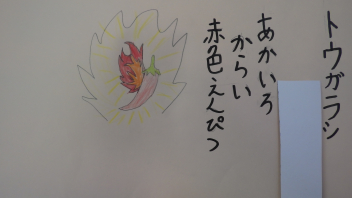 トウガラシ
あかいろ
からい
赤色えんぴつ